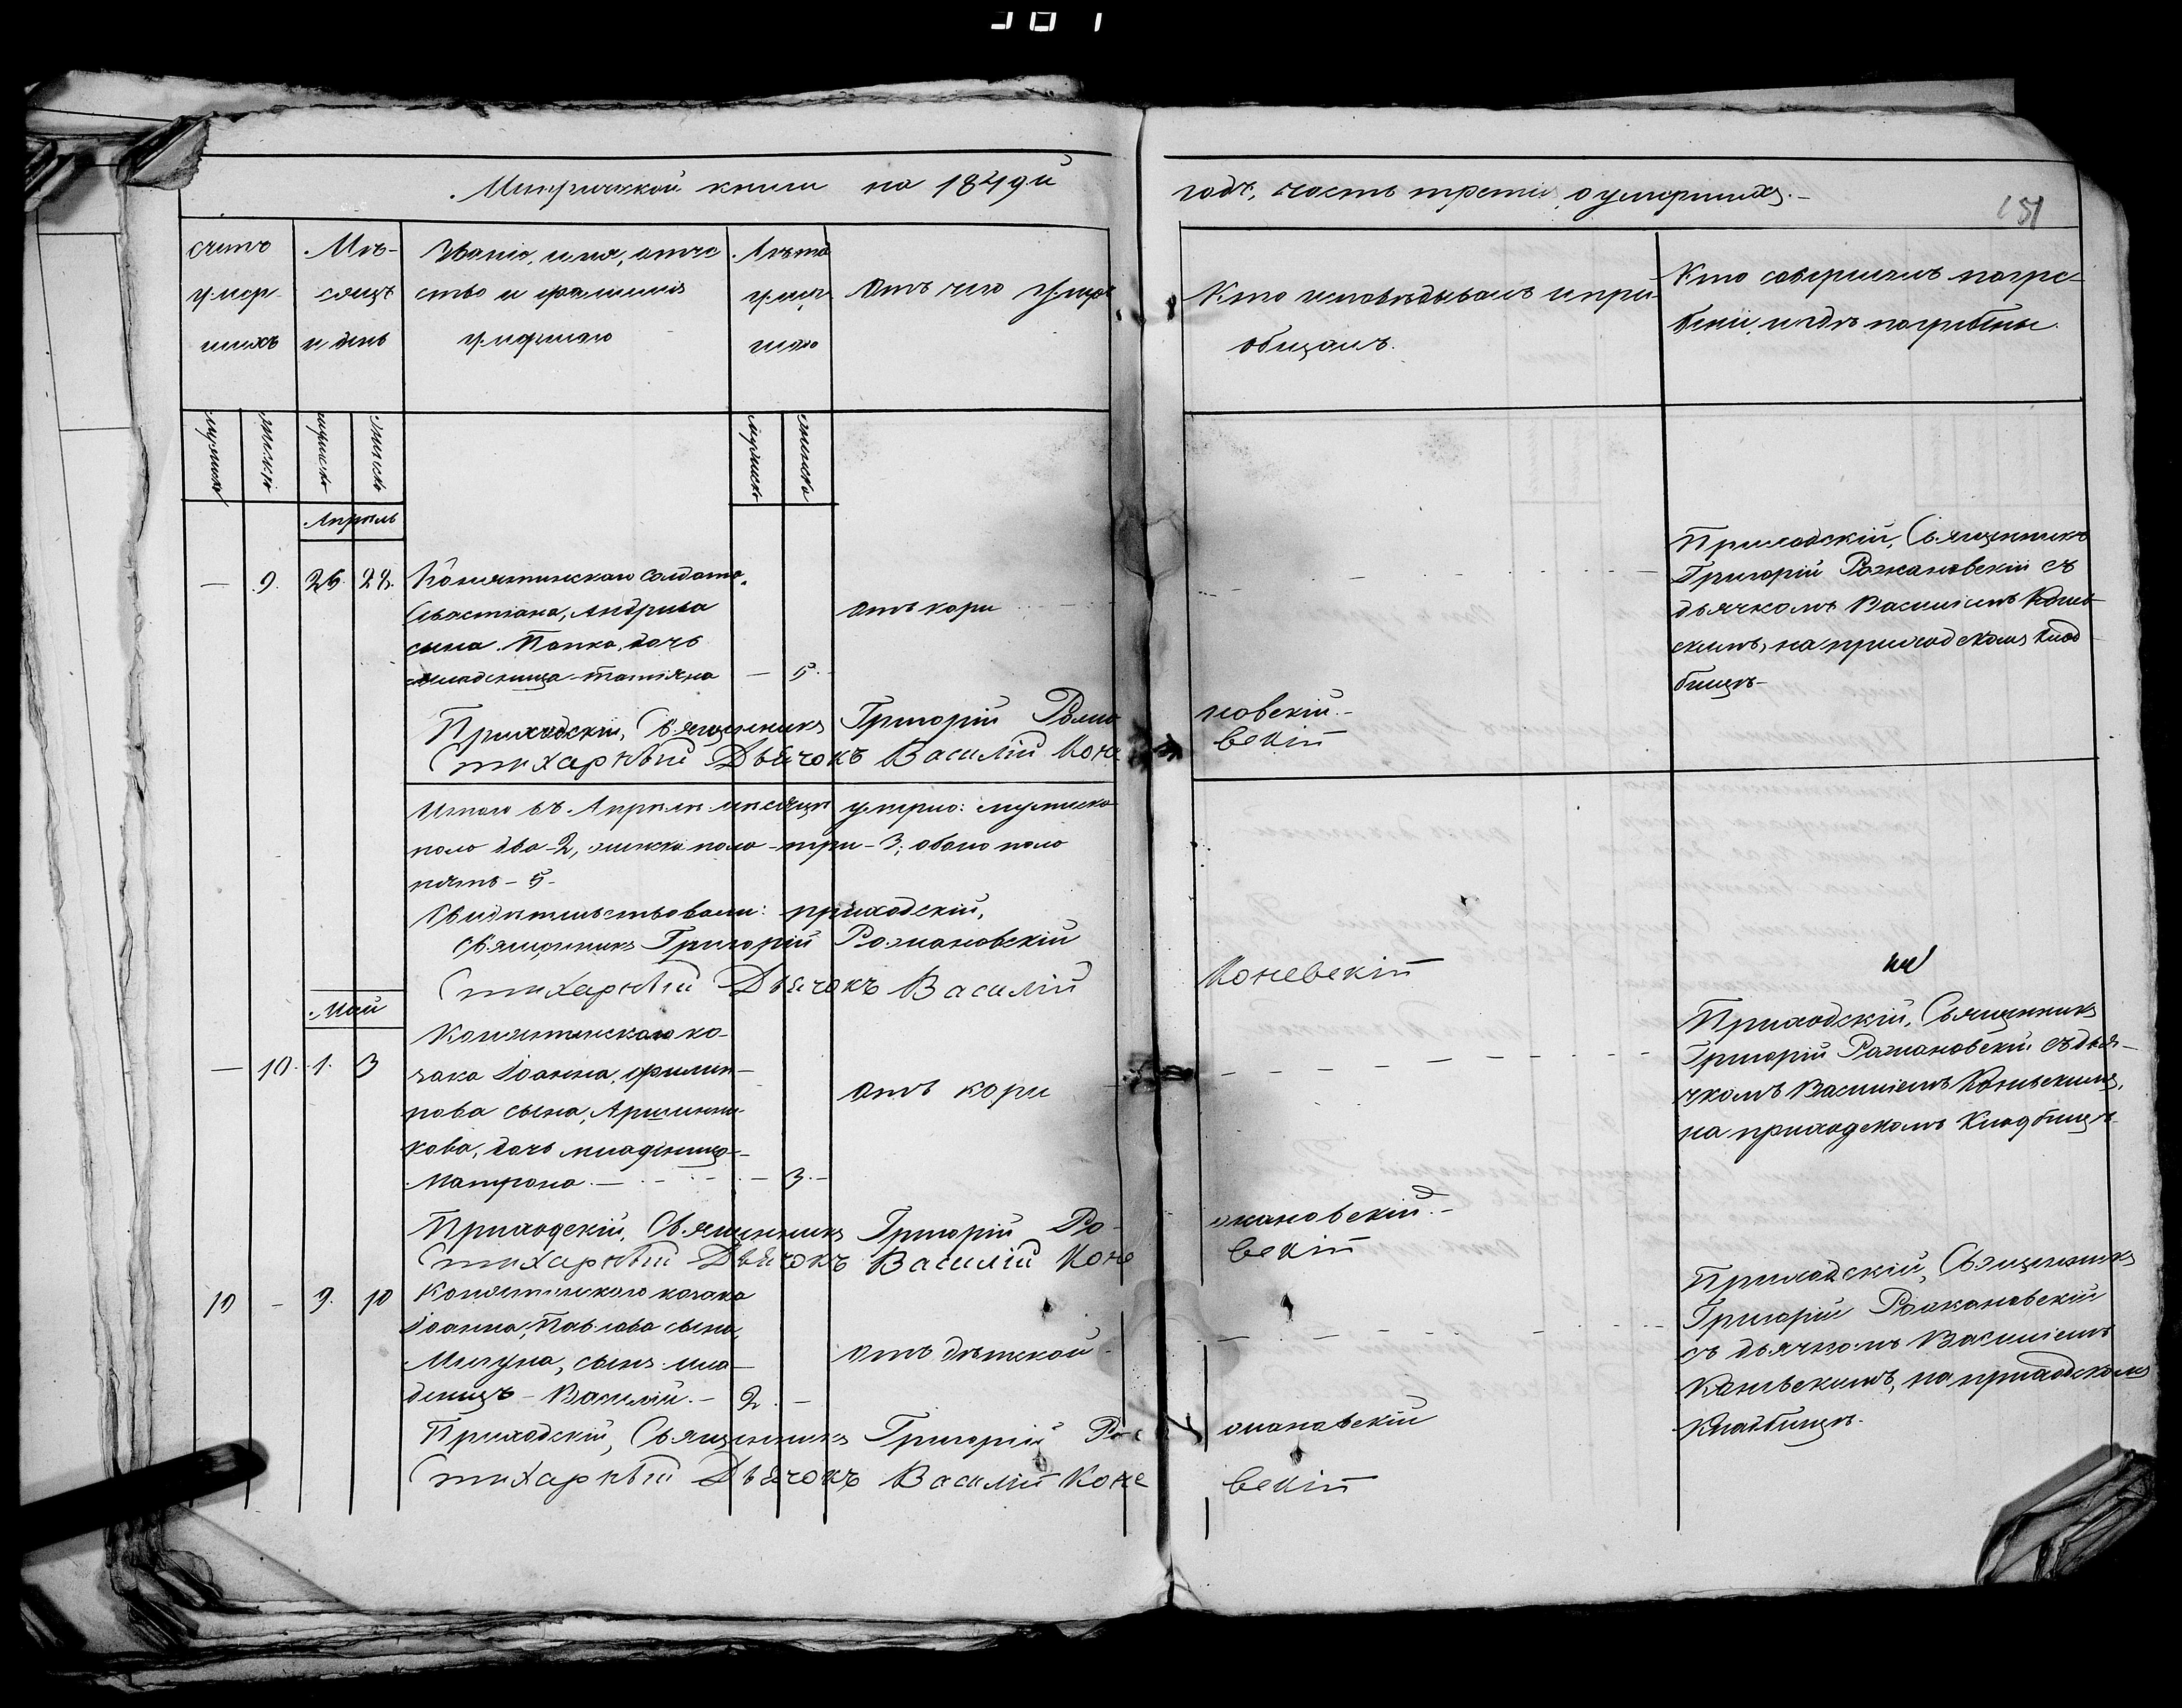 Метрической книги на 1849й
годъ, часть третія, о умершихъ.-
151
счетъ умершихъ
Мѣсяцъ и день
Званіе, имя, отчество и фамилія умершаго
Лѣта умершаго
Отъ чего умеръ
Кто исповѣдывалъ и прі-
общалъ.
Кто совершилъ погре-
беніе и гдѣ погребены.
мужеска
женска
мужеска
женска
мужеска
женска
Апрѣль
— 9. 26. 28.
солдата
Андреева
сына Попка, дочь
младеница Татіяна — 5.-
отъ кори
Приходскій, Священникъ
Григорій Рожановскій съ
дьячкомъ Василіемъ
на приходскомъ клад-
бищѣ-
Приходскій, Священникъ Григорій Рожановскій.-
Стихарный Дьячокъ Василій Коневскій
Итого въ Апрѣлѣ мѣсяцѣ умерло: мужеска
пола два-2, женска пола -три-3; обоего пола
пять-5-
Свидѣтельствовали: приходскій,
Священникъ Григорій Рожановскій
Стихарный Дьячокъ Василій Коневскій
Май
— 10. 1. 3
ко-
зака Іоанна, Филип-
пова сына,
кова, дочь младеница-
Матрона.- — 3.-
отъ кори
Приходскій, Священникъ
Григорій Рожановскій съ дья-
чкомъ Василіемъ
на приходскомъ Кладбищѣ-
Приходскій, Священникъ Григорій Рожановскій.-
Стихарный Дьячокъ Василій Коневскій
10 - 9. 10
козака
Іоанна, Павлова сына,
Мигуна, сынъ мла-
денецъ - Василій.- 2. -
отъ дѣтской-
Приходскій, Священникъ
Григорій Рожановскій
съ дьячкомъ Василіемъ
на приходскомъ
Кладбищѣ.
Приходскій, Священникъ Григорій Рожановскій
Стихарный Дьячокъ Василій Коневскій